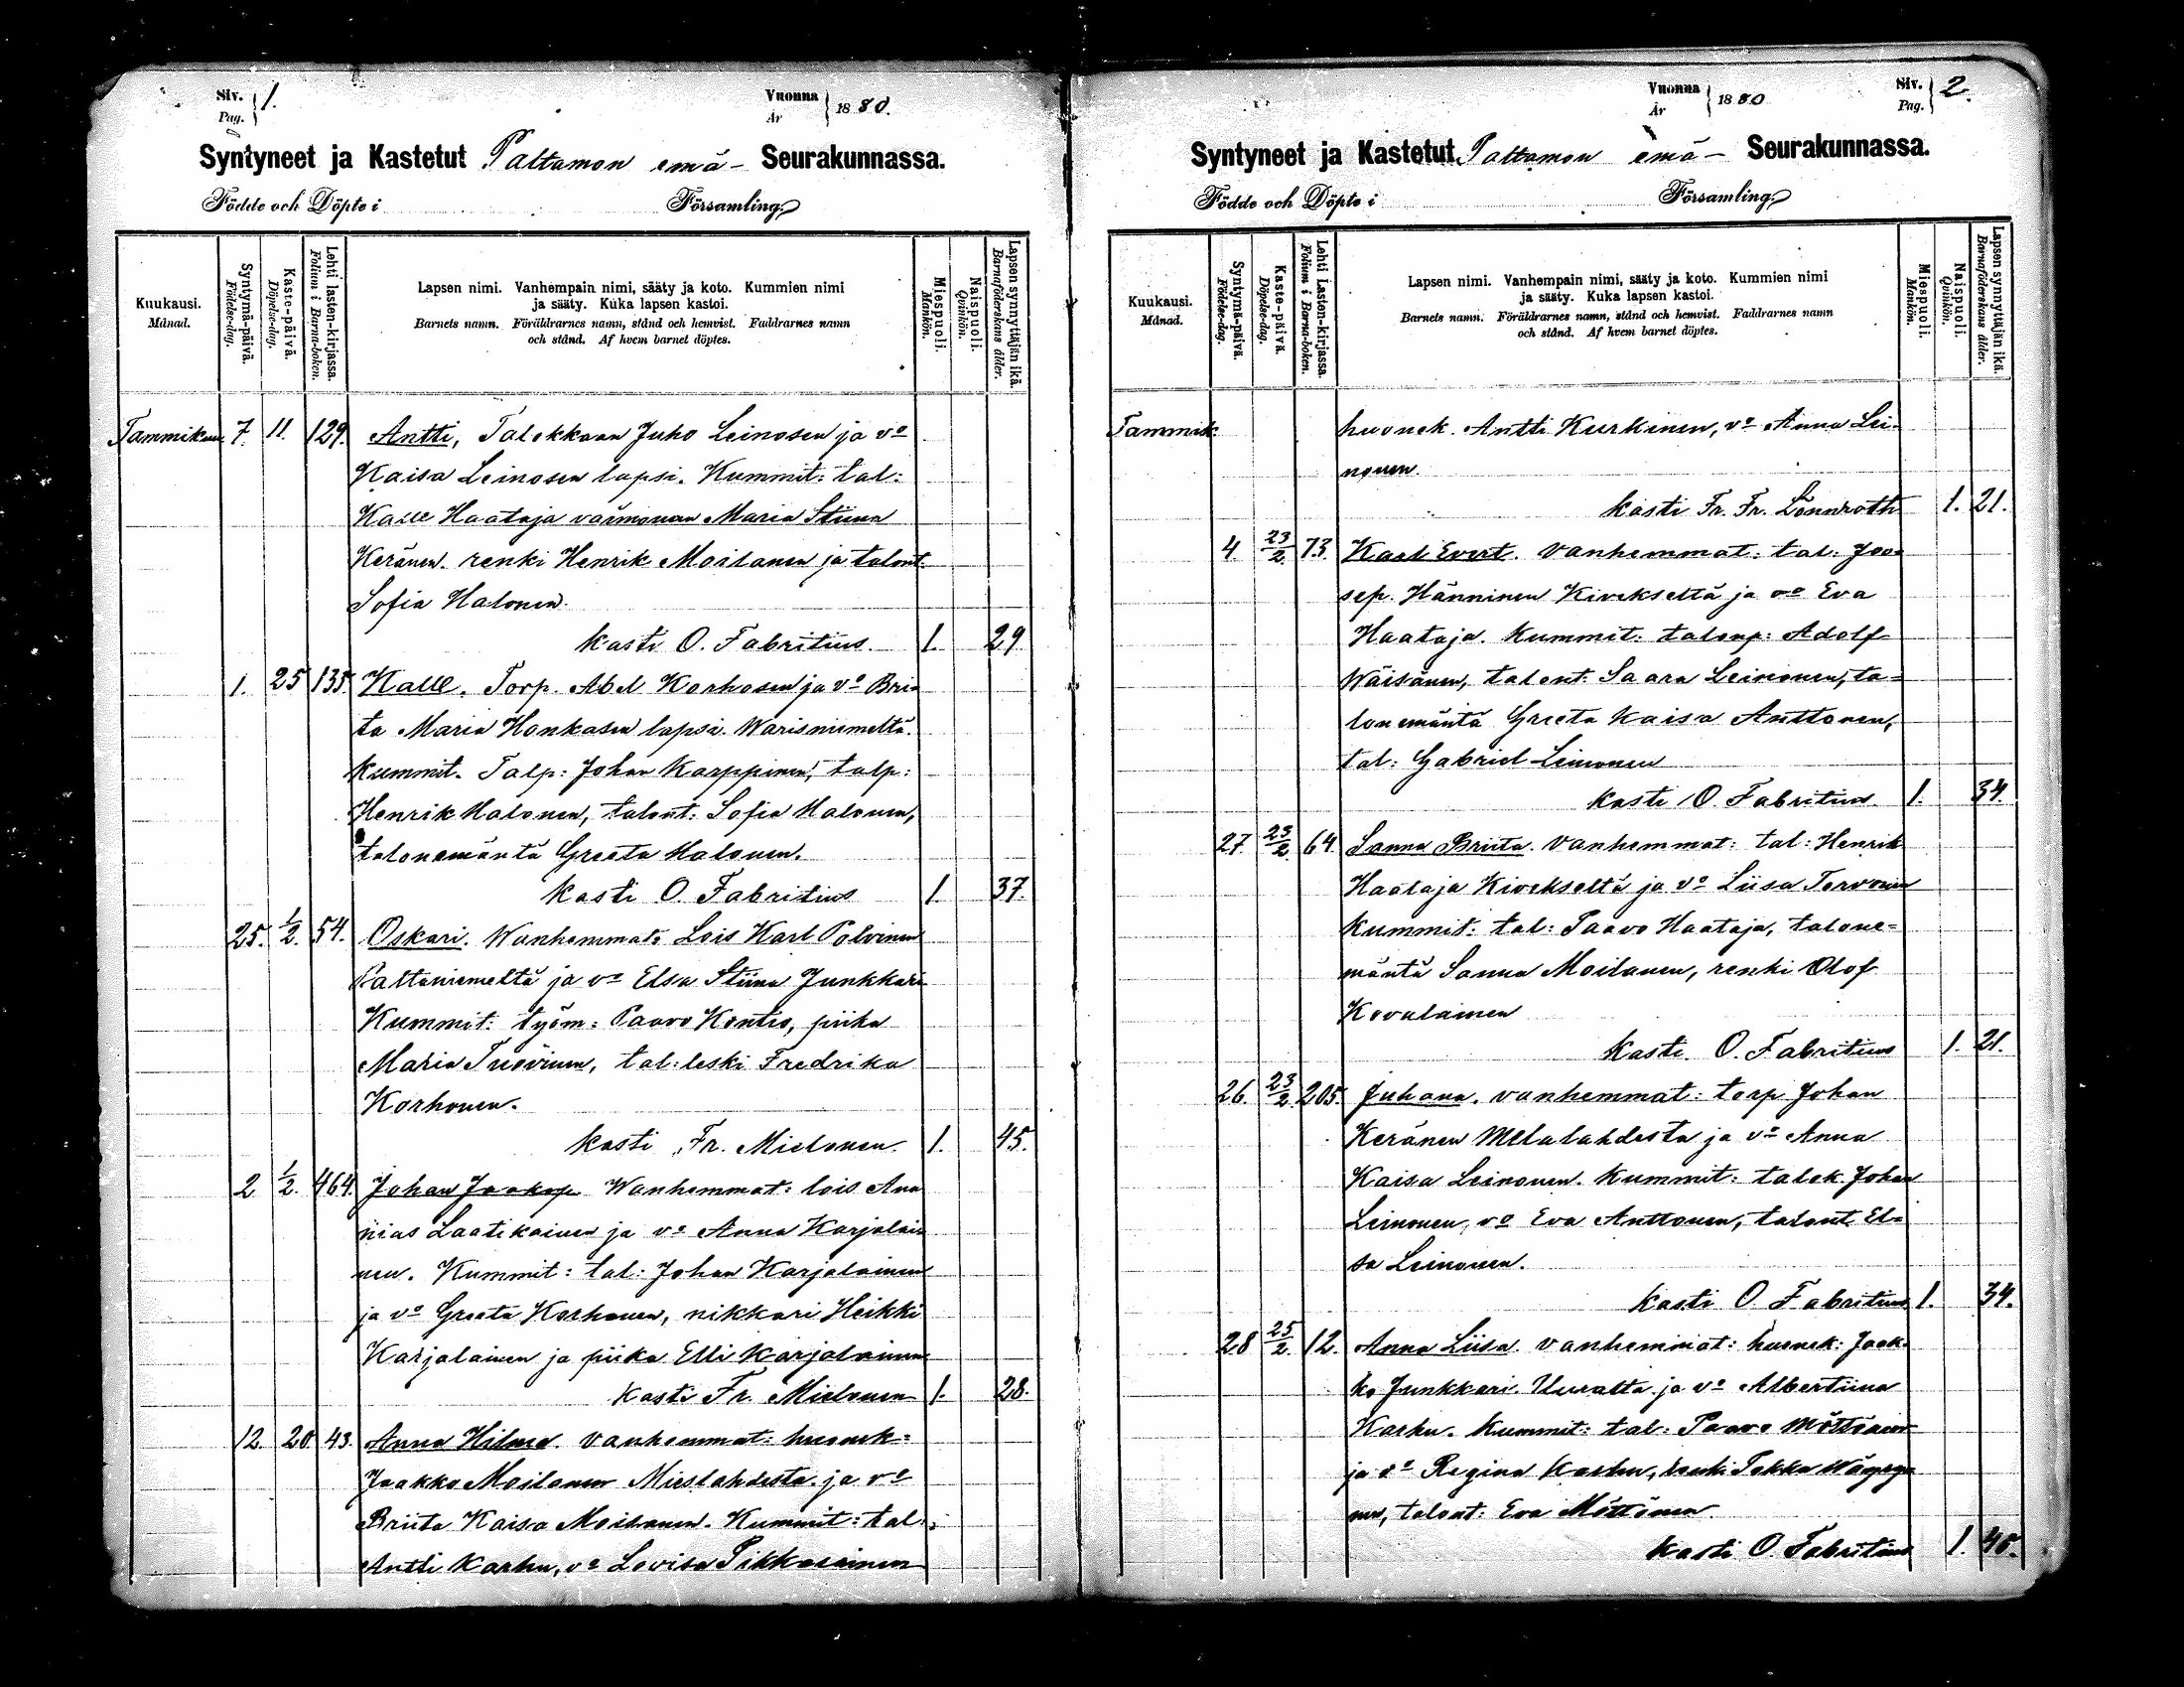 Siv. Pag. 1.
Vuonna År 1880.
Syntyneet ja Kastetut Paltamon emä- Seurakunnassa.
Födde och Döpte i Församling
Kuukausi. Månad.
Syntymä-päivä. Födelse-dag.
Kaste-päivä. Döpelse-dag.
Lehti lasten-kirjassa. Folium i Barna-boken.
Lapsen nimi. Vanhempain nimi, sääty ja koto. Kummien nimi
ja sääty. Kuka lapsen kastoi.
Barnets namn. Föräldrarnes namn, stånd och hemvist. Faddrarnes namn
och stånd. Af hvem barnet döptes.
Miespuoli. Mankön.
Naispuoli. Qvinkön.
Lapsen synnyttäjän ikä. Barnaföderskans ålder.
Tammikuu 7. 11. 129. Antti, Talokkaan Juho Leinosen ja vo
Kaisa Leinosen lapsi. Kummit: tal:
Kalle Haataja vaimonen Maria Stiina
Keränen. renki Henrik Moilanen ja talont.
Sofia Halonen.
kasti O. Fabritius. 1. 29.
1. 25 135. Kalle. Torp. Abel Korhosen ja vo Bri-
ta Maria Honkasen lapsi. Warisniemeltä.
Kummit. Talp: Johan Karppinen, talp:
Henrik Halonen, talont: Sofia Halonen,
talonemäntä Greeta Halonen.
kasti O. Fabritius 1. 37.
25. 1/2. 54. Oskari. Wanhemmat: Lois Karl Polvinen
Paltaniemeltä ja vo Elsa Stiina Junkkari
Kummit: työm: Paavo Kontio, piika
Maria Tuovinen, tal: leski Fredrika
Korhonen.
kasti Fr. Mielonen. 1. 45.
2 1/2. 464. Johan Jaakop Wanhemmat: lois Ana
nias Laatikainen ja vo Anna Karjalai-
nen. Kummit: tal: Johan Karjalainen
ja vo Greeta Korhonen, nikkari Heikki
Karjalainen ja piika Elli Karjalainen
kasti Fr. Mielonen 1. 28.
12. 20. 43. Anna Hilma. Vanhemmat: huonek:
Jaakko Moilanen Mieslahdesta ja vo
Briita Kaisa Moilanen. Kummit: tal:
Antti Karhu, vo Lovisa Pikkarainen
Vuonna År 1880
Siv. Pag. 2.
Syntyneet ja Kastetut Paltamon emä- Seurakunnassa.
Födde och Döpte i Församling
Kuukausi. Månad.
Syntymä-päivä. Födelse-dag.
Kaste-päivä. Döpelse-dag.
Lehti Lasten-kirjassa. Folium i Barna-boken.
Lapsen nimi. Vanhempain nimi, sääty ja koto. Kummien nimi
ja sääty. Kuka lapsen kastoi.
Barnets namn. Föräldrarnes namn, stånd och hemvist. Faddrarnes namn
och stånd. Af hvem barnet döptes.
Miespuoli. Mankön.
Naispuoli. Qvinkön.
Lapsen synnyttäjän ikä. Barnaföderskans ålder.
Tammik. huonek. Antti Kurkinen, vo Anna Lei-
nonen.
kasti Fr. Fr. Lönnroth 1. 21.
4. 23/2 73. Karl Evert. Vanhemmat: tal: Joo-
sep. Hänninen Kivekseltä ja vo Eva
Haataja. Kummit: talonp: Adolf
Wäisänen, talont: Saara Leinonen, ta-
lonemäntä Greeta Kaisa Anttonen,
tal: Gabriel Leinonen
kasti O. Fabritius 1. 34.
27. 23/2 64. Sanna Briita. Vanhemmat: tal: Henrik
Haataja Kivekseltä ja vo Liisa Tervonen
Kummit: tal: Paavo Haataja, talone=
mäntä Sanna Moilanen, renki Olof
Kovalainen
kasti. O. Fabritius 1. 21.
26. 23/2 205. Juhana. vanhemmat: torp Johan
Keränen Melalahdesta ja vo Anna
Kaisa Leinonen. Kummit: talok. Johan
Leinonen, vo Eva Anttonen, talont. El-
sa Leinonen.
kasti O. Fabritius 1. 34.
28 25/2. 12. Anna Liisa. Vanhemmat: huonek: Jaak-
ko Junkkari. Uuralta ja vo Albertiina
Karhu. Kummit: tal: Paavo Möttönen
ja vo Regina Karhu, renki Pekka
nen, talont: Eva Möttönen.
kasti O. Fabritius 1. 40.